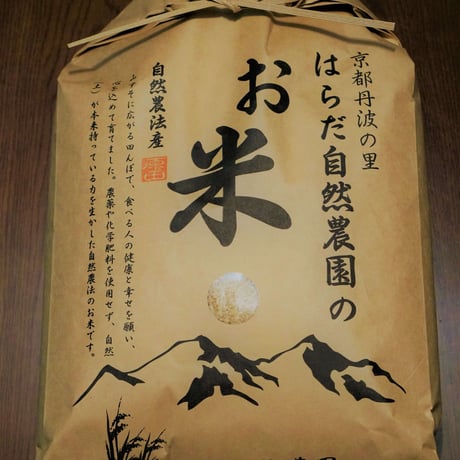 京都丹波の里
はらだ自然農園の
お米
自然農法産
ふもそに広がる田んぼで、食べる人の健康と幸せを願い、
心を込めて育てました。農薬や化学肥料を使用せず、自然
(土)が本来持っている力を生かした自然農法のお米です。